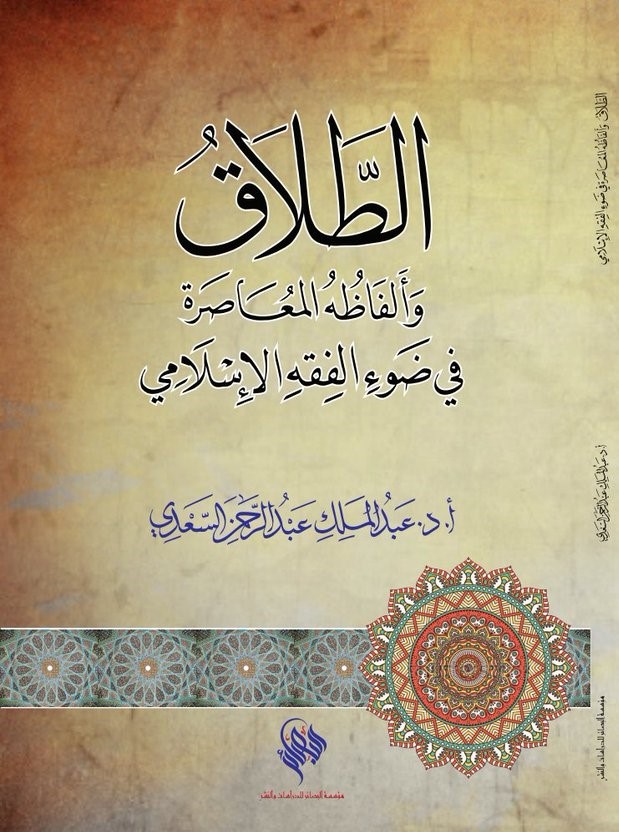 الطَّلَاقُ
وَأَلفَاظُهُ المُعَاصَرَة
فِي ضَوءِ الفِقهِ الإِسْلَامِي
أ.د. عَبدُ المَلِكِ عَبْدُ الرَّحمٰنِ السَّعْدِي
البصائر
مؤسسة البصائر للدراسات والنشر
الطَّلَاقُ وَأَلفَاظُهُ المُعَاصَرَة فِي ضَوءِ الفِقهِ الإِسْلَامِي
أ.د. عَبدُ المَلِكِ عَبْدُ الرَّحمٰنِ السَّعْدِي
مؤسسة البصائر للدراسات والنشر